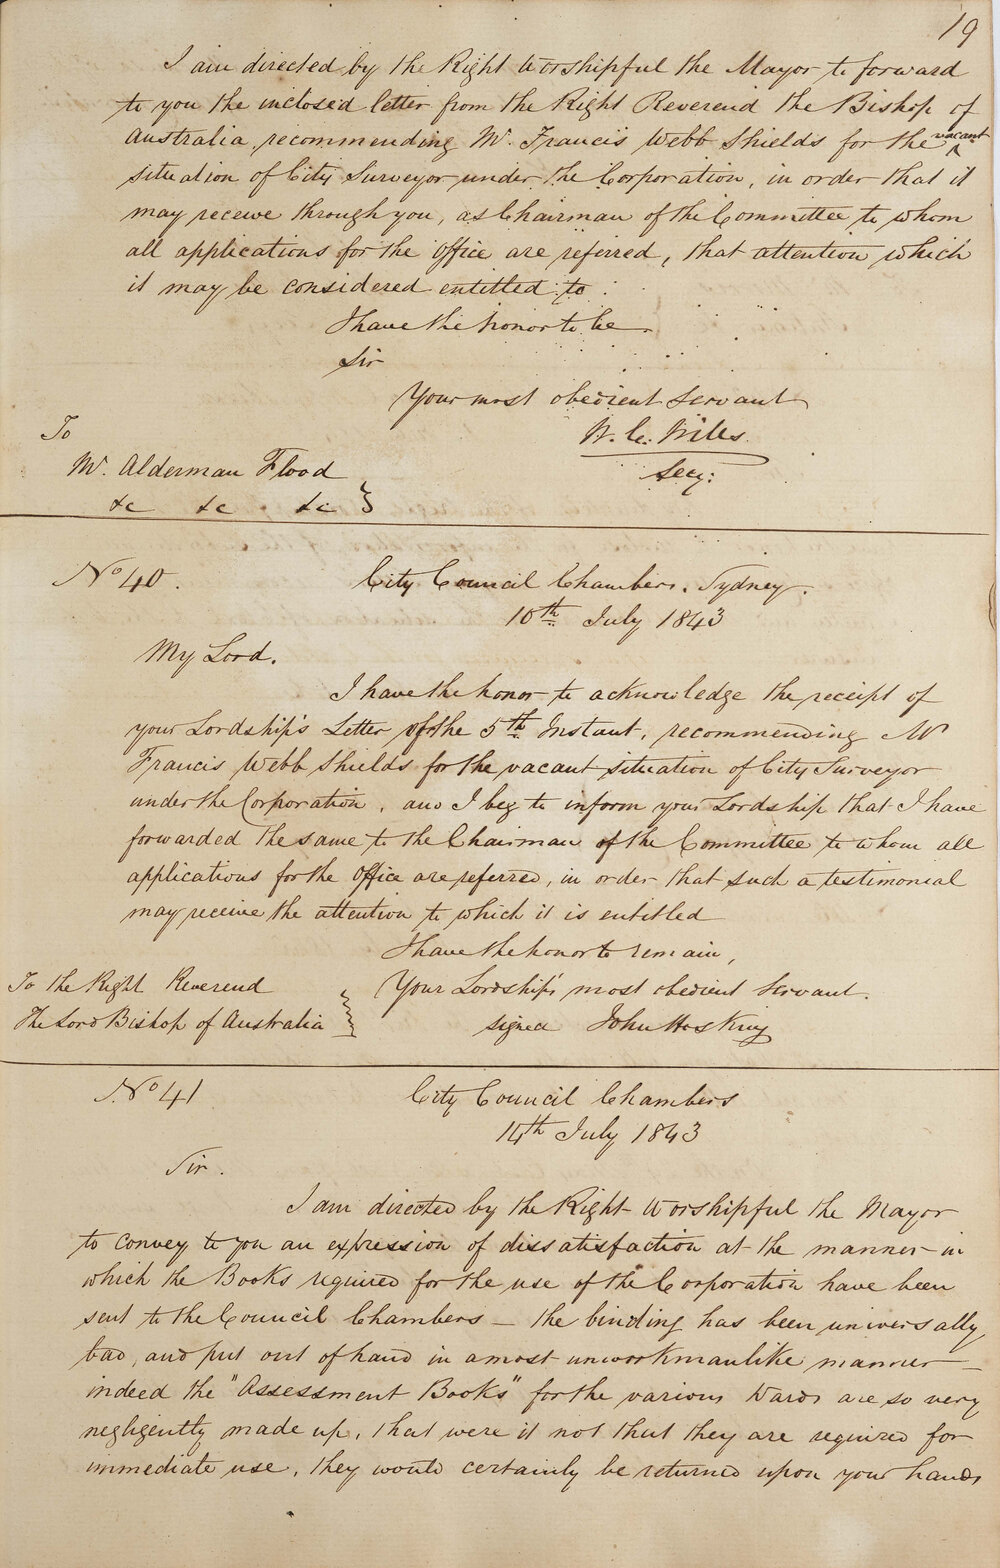 19
I am directed by the Right Worshipful the Mayor to forward
to you the inclosed letter from the Right Reverend the Bishop of
Australia, recommending Mr. Francis Webb Shields for the vacant
situation of City Surveyor under the Corporation, in order that it
may receive through you, as Chairman of the Committee to whom
all applications for the office are referred, that attention which
it may be considered entitled to.
I have the honor to be
Sir
Your most obedient Servant
W. C. Wills
Secy:
To
Mr. Alderman Flood
&c &c &c
No 40. City Council Chambers. Sydney.
10th July 1843
My Lord.
I have the honor to acknowledge the receipt of
your Lordship's Letter of the 5th Instant, recommending Mr
Francis Webb Shields for the vacant situation of City Surveyor
under the Corporation, and I beg to inform your Lordship that I have
forwarded the same to the Chairman of the Committee to whom all
applications for the office are referred, in order that such a testimonial
may receive the attention to which it is entitled
I have the honor to remain,
Your Lordship's most obedient Servant.
signed John Hosking
To the Right Reverend
The Lord Bishop of Australia
No 41 City Council Chambers
14th July 1843
Sir.
I am directed by the Right Worshipful the Mayor
to convey to you an expression of dissatisfaction at the manner in
which the Books required for the use of the Corporation have been
sent to the Council Chambers — the binding has been universally
bad, and put out of hand in a most unworkmanlike manner —
indeed the "Assessment Books" for the various Wards are so very
negligently made up, that were it not that they are required for
immediate use, they would certainly be returned upon your hands